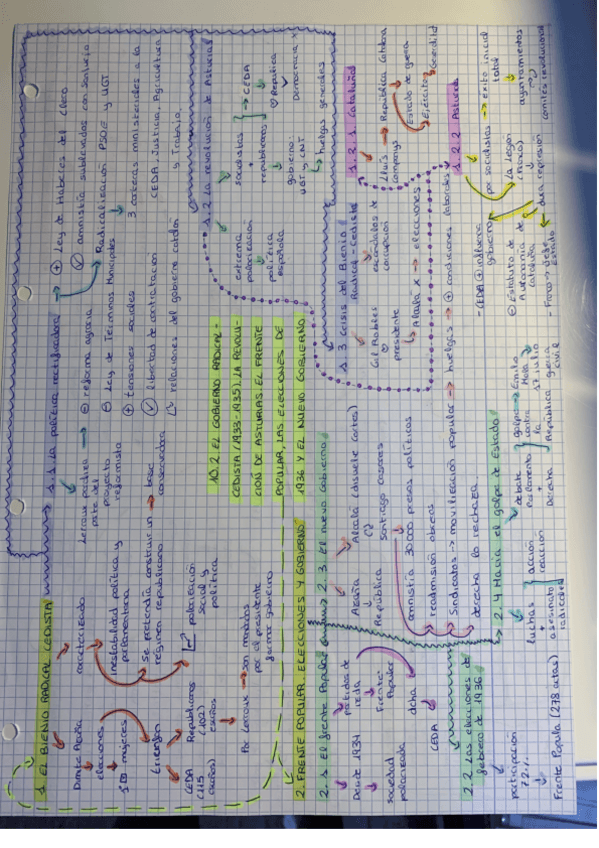 1. EL BIENIO RADICAL CEDISTA
Dimite Azaña
elecciones
1ª mujeres
Triunfan
CEDA (115 escaños)
Republicanos (102) escaños
Po Lerroux → son mandados por el presidente formar gobierno
caracterizado
inestabilidad política y parlamentaria
se pretendía construir un régimen republicano → base conservadora
polarización social y política
1.1 La política rectificadora
Lerroux paraliza parte del proyecto reformista
⊖ reforma agraria
⊖ Ley de Términos Municipales
⊕ tensiones sociales
libertad de contratación
relaciones del gobierno catalán
⊕ Ley de Haberes del Clero
amnistía sublevados con Sanjurjo
Radicalización PSOE y UGT
3 carteras ministeriales a la CEDA, Justicia, Agricultura y Trabajo.
10.2. EL GOBIERNO RADICAL-
CEDISTA (1933-1935). LA REVOLU-
CIÓN DE ASTURIAS. EL FRENTE
POPULAR, LAS ELECCIONES DE
1936 Y EL NUEVO GOBIERNO
1.2 La revolución de Asturias
extrema polarización
política española
socialistas
+
republicanos
→ CEDA
República
Democracia x
gobierno:
UGT y CNT
huelgas generales
1.2.1. Cataluña
Lluís Companys
→ República Catalana
Estado de guerra
Ejército
1.2.2 Asturias
por socialistas → éxito inicial total
ayuntamientos
comités revolucionarios
La Legión (Franco)
dura represión
- CEDA ⊕ influencia gobierno
⊖ Estatuto de Autonomía de Cataluña
- Franco → Jefe Estado
1.3 Crisis del Bienio Radical-Cedista
Gil Robles
presidente
escándalos de corrupción
Alcalá x → elecciones
2. FRENTE POPULAR. ELECCIONES Y GOBIERNO
2.1 El frente Popular
Desde 1934
sociedad polarizada
partidos de izda
Frente Popular
dcha
CEDA
2.2 Las elecciones de febrero de 1936
participación 72%
Frente Popula (278 actas)
2.3. El nuevo gobierno
Azaña
República
Alcalá (disuelve Cortes)
Santiago Casares
amnistía 30.000 presos políticos
readmisión obreros
Sindicatos → movilización popular → huelgas → ⊕ condiciones laborales
derecha lo rechaza.
2.4 Hacia el golpe de Estado
luchas
+
asesinato radicales
acción
reacción
Debate Parlamento
+
Derecha
golpe → Emilio Mola
contra la República
17 julio
guerra civil